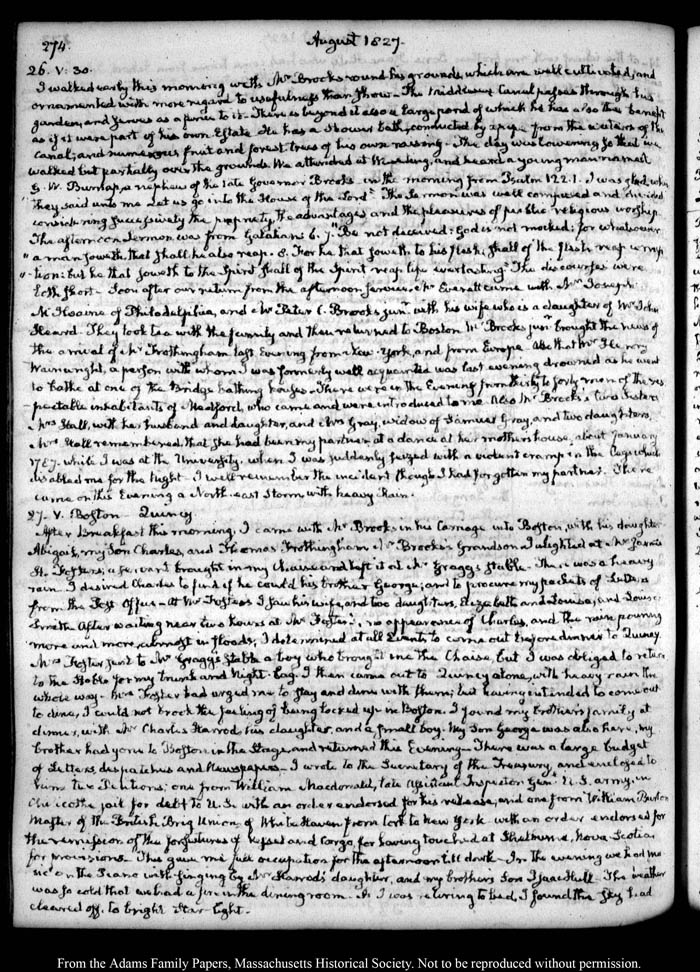 274.
August 1827.
26. V: 30.
I walked early this morning with Mr Brooks round his grounds, which are well cultivated, and
ornamented with more regard to usefulness than show. The Middlesex Canal passes through his
garden, and serves as a fence to it. There is beyond it also a large pond of which he has also the benefit
as if it were part of his own Estate. He has a Shower bath, conducted by a pipe from the waters of the
canal; and numerous fruit and forest trees of his own raising. The day was lowering so that we
walked but partially over the grounds. We attended at Meeting, and heard a young man named
G. W. Burnap, a nephew of the late Governor Brooks in the morning from Psalm 122.1. I was glad when
"they said unto me Let us go into the House of the Lord." The Sermon was well composed and divided
considering successively the propriety, the advantages and the pleasures of public religious worship.
The afternoon Sermon was from Galatians 6.7. "Be not deceived: God is not mocked: for whatsoever
"a man soweth, that shall he also reap. 8. For he that soweth to his flesh, shall of the flesh reap corrup
"tion: but he that soweth to the Spirit shall of the Spirit reap life everlasting" The discourses were
both short. Soon after our return from the afternoon service, Mr Everett came with Mr Joseph
M'Ilvaine of Philadelphia, and Mr Peter C. Brooks junr with his wife who is a daughter of Mr John
Heard. They took tea with the family and then returned to Boston. Mr Brooks junr brought the news of
the arrival of Mr Frothingham last Evening from New-York, and from Europe. Also that Mr Henry
Wainwright, a person with whom I was formerly well acquainted was last evening drowned as he went
to bathe at one of the Bridge bathing houses. There were in the Evening from thirty to forty men of the res
pectable inhabitants of Medford, who came and were introduced to me. Also Mr Brooks's two Sisters
Mrs Hall, with her husband and daughter, and Mrs Gray, widow of Samuel Gray, and two daughters.
Mrs Hall remembered that she had been my partner at a dance at her mother's house, about January
1787. while I was at the University, when I was suddenly seized with a violent cramp in the leg which
disabled me for the night. I well remember the incident though I had forgotten my partner. There
came on this Evening a North-east Storm with heavy Rain.
27. V. Boston Quincy
After Breakfast this morning, I came with Mr Brooks in his Carriage into Boston, with his daughter
Abigail, my Son Charles, and Thomas Frothingham Mr Brooks's Grandson. I alighted at Mr James
H. Foster's; a servant brought in my Chaise and left it at Mr Gragg's stable. There was a heavy
rain. I desired Charles to find if he could his brother George; and to procure my packets of Letters
from the Post Office. At Mr Foster's I saw his wife, and two daughters, Elizabeth and Louisa, and Louisa
Smith. After waiting near two hours at Mr Foster's, no appearance of Charles, and the rain pouring
more and more, almost in floods, I determined at all Events to come out before dinner to Quincy.
Mrs Foster sent to Mr Gragg's stable a boy who brought me the Chaise, but I was obliged to return
to the Stable for my trunk and Night-bag. I then came out to Quincy alone, with heavy rain the
whole way. Mrs Foster had urged me to stay and dine with them; but having intended to come out
to dine, I could not brook the feeling of being locked up in Boston. I found my brother's family at
dinner, with Mr Charles Harrod, his daughter, and a small boy. My Son George was also here, my
brother had gone to Boston in the Stage, and returned this Evening. There was a large budget
of Letters, despatches and Newspapers. I wrote to the Secretary of the Treasury, and enclosed to
him two Petitions; one from William Macdonald, late Assistant Inspector Genl U.S. army, in
Chillicothe jail for debt to U.S. with an order endorsed for his release, and one from William Burton
Master of the British Brig Union, of White Haven from Cork to New York with an order endorsed for
the remission of the forfeitures of vessel and Cargo, for having touched at Shelburne, Nova Scotia
for provisions. This gave me full occupation for the afternoon till dark. In the evening we had mu
sic on the Piano with singing by Mr Harrod's daughter, and my brother's Son Isaac Hull. The weather
was so cold that we had a fire in the dining room. As I was retiring to bed, I found the Sky had
cleared off, to bright Star-light.
From the Adams Family Papers, Massachusetts Historical Society. Not to be reproduced without permission.